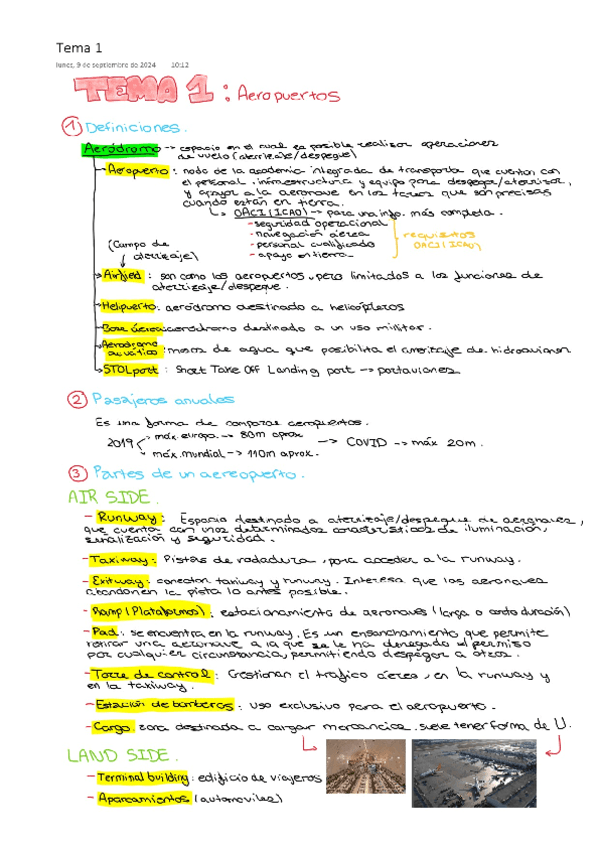 Tema 1
lunes, 9 de septiembre de 2024 10:12
TEMA 1 : Aeropuertos
1 Definiciones.
Aeródromo -> espacio en el cual es posible realizar operaciones
de vuelo (aterrizaje/despegue)
- Aeropuerto : nodo de la academia integrada de transporte que cuentan con
el personal, infraestructura y equipo para despegar/aterrizar,
y apoyar a la aeronave en las tareas que son precisas
cuando están en tierra.
↳ OACI (ICAO) -> para una info. más completa.
- seguridad operacional
- navegación aérea
- personal cualificado
- apoyo en tierra
requisitos
OACI (ICAO)
(Campo de
aterrizaje)
- Airfield : son como los aeropuertos, pero limitados a las funciones de
aterrizaje/despegue.
- Helipuerto : aeródromo destinado a helicópteros
- Base aérea : aeródromo destinado a un uso militar.
- Aeródromo
acuático : masa de agua que posibilita el amerizaje de hidroaviones
- STOLport : Short Take Off Landing port -> portaviones
2 Pasajeros anuales
Es una forma de comparar aeropuertos.
2019 máx. europa. -> 80m aprox -> COVID -> máx 20m.
máx. mundial -> 110m aprox.
3 Partes de un aereopuerto.
AIR SIDE.
- Runway : Espacio destinado a aterrizaje/despegue de aeronaves,
que cuenta con unas determinadas características de iluminación,
señalización y seguridad.
- Taxiway : Pistas de rodadura, para acceder a la runway.
- Exitway : conectan taxiway y runway. Interesa que las aeronaves
abandonen la pista lo antes posible.
- Ramp (Plataformas) : estacionamiento de aeronaves (larga o corta duración)
- Pad : se encuentra en la runway. Es un ensanchamiento que permite
retirar una aeronave a la que se le ha denegado el permiso
por cualquier circunstancia, permitiendo despegar a otros.
- Torre de control : Gestionan el trafico aéreo, en la runway y
en la taxiway.
- Estación de bomberos : uso exclusivo para el aeropuerto.
- Cargo : zona destinada a cargar mercancías. Suele tener forma de U.
LAND SIDE.
- Terminal building : edificio de viajeros
- Aparcamientos (automoviles)